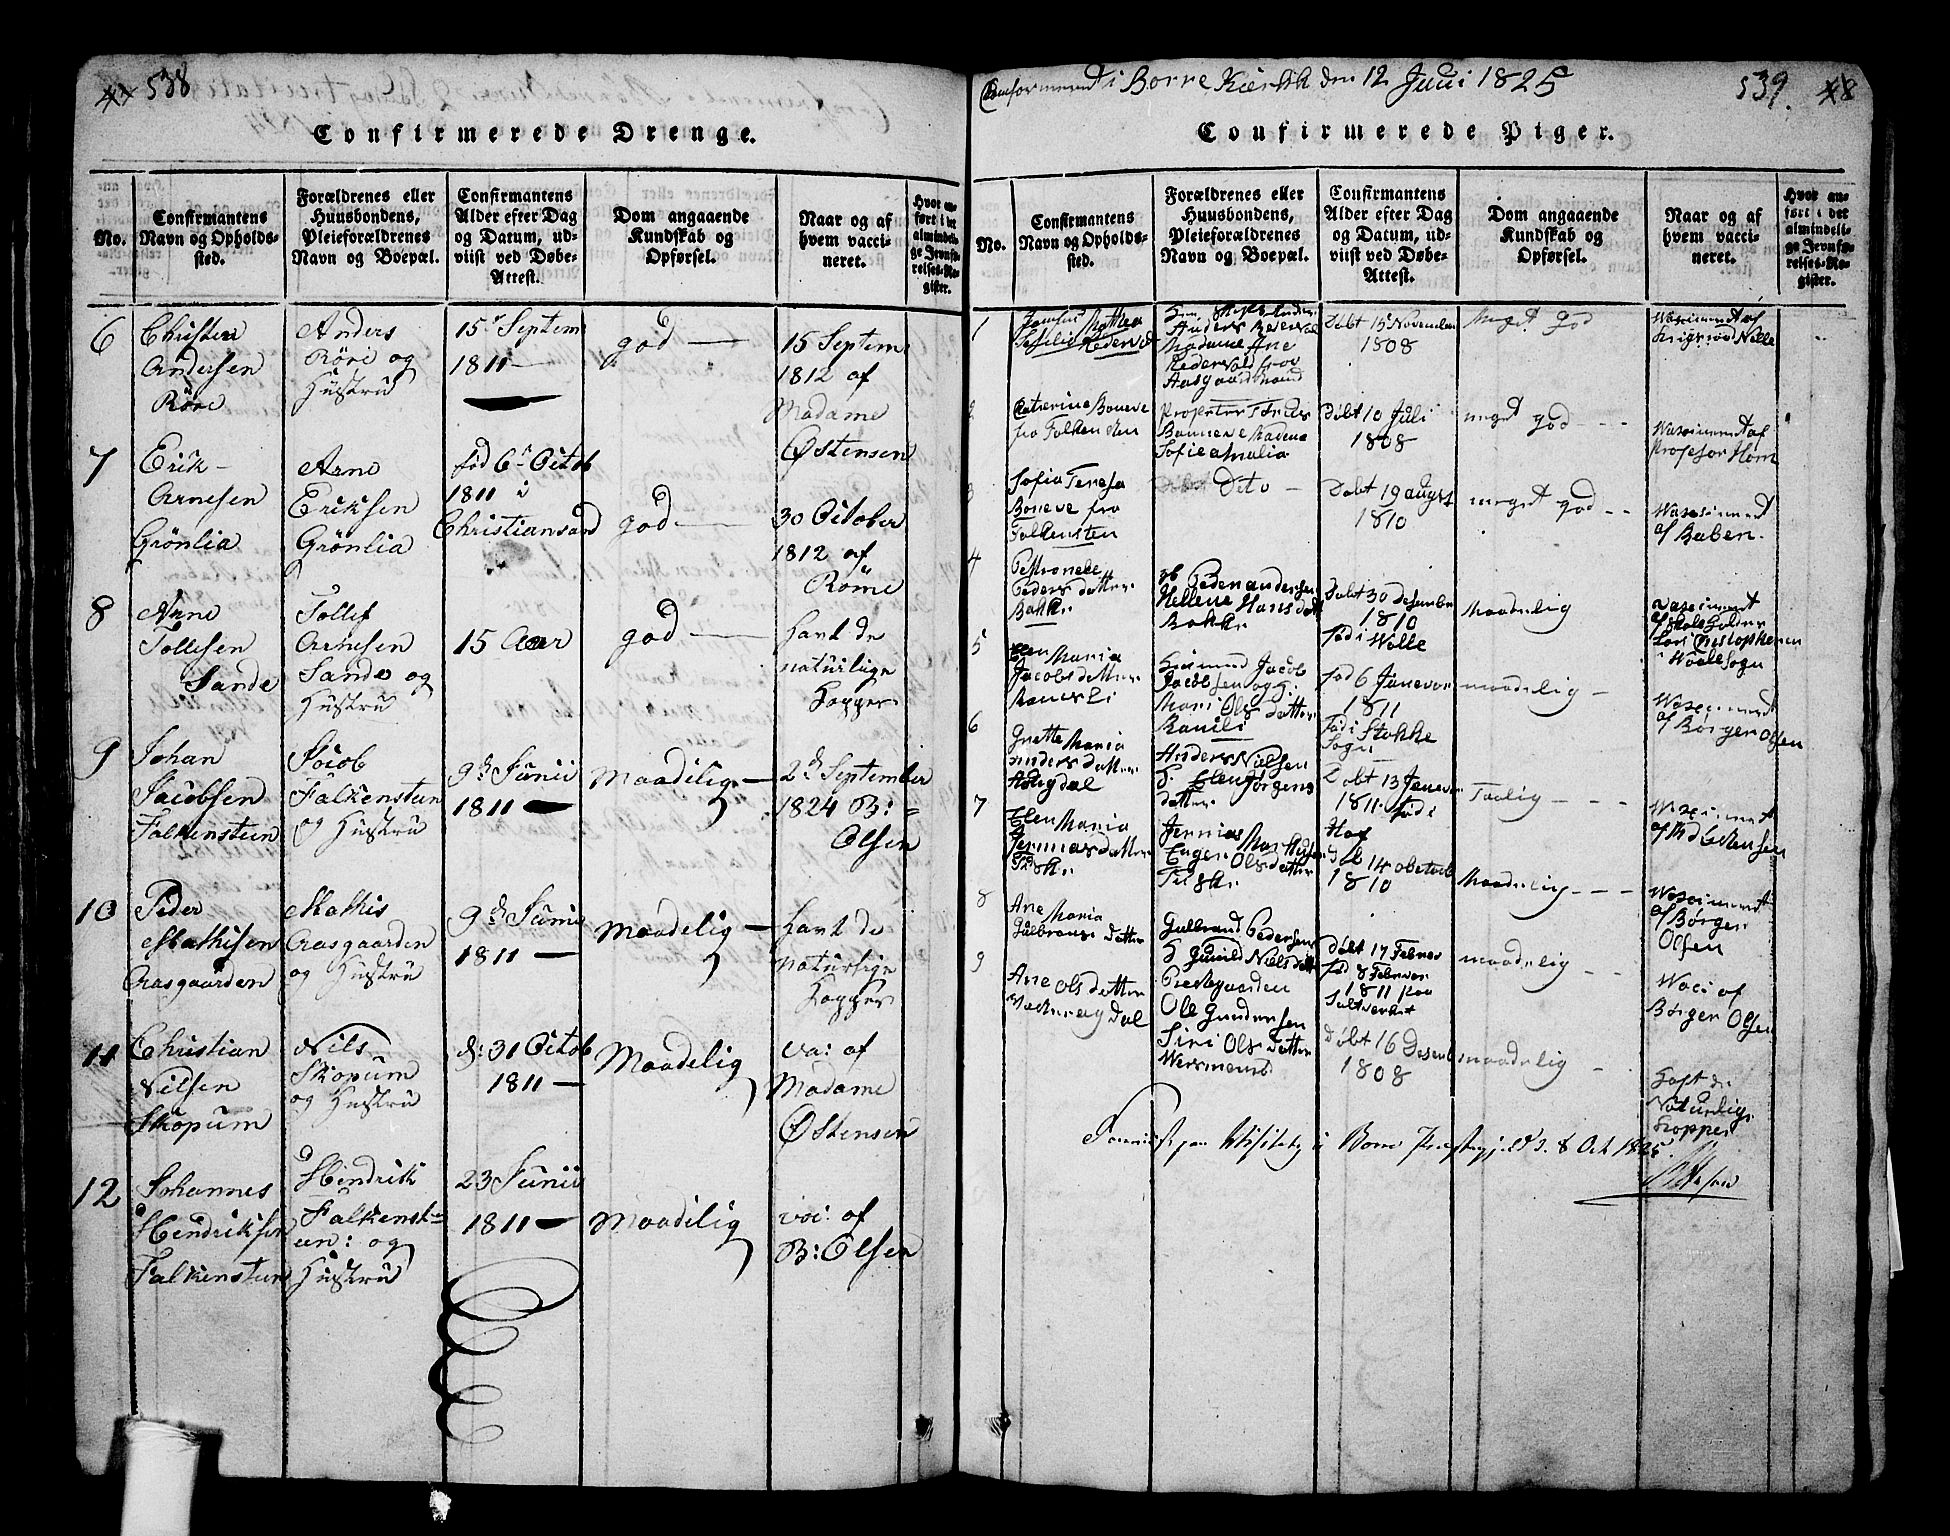 538
Confirmerede Drenge.
No.
Confirmantens
Navn og Opholds-
sted.
Forældrenes eller
Huusbondens,
Pleieforældrenes
Navn og Boepæl.
Confirmantens
Alder efter Dag
og Datum, ud-
viist ved Døbe-
Attest.
Dom angaaende
Kundskab og
Opførsel.
Naar og af
hvem vacci-
neret.
Hvor an-
ført i det
almindeli-
ge Jevnfø-
relses-Re-
gister.
6
Christen
Andersen
Röre
Anders
Röre og
Hustru
15 Septem
1811
god
15 Septem
1812 af
Madame
Østensen
7
Erik
Arnesen
Grönlia
Arne
Eriksen
Grönlia
fød 6 Octob
1811 i
Christiansand
god
30 October
1812 af
Röme
8
Arne
Tollefsen
Sande
Tollef
Arnesen
Sande og
Hustru
15 Aar
god
havt de
naturlige
Kopper
9
Johan
Jacobsen
Falkensteen
Jacob
Falkensteen
og Hustru
9 Junii
1811
Maadelig
2 September
1824 B:
Olsen
10
Peder
Mathisen
Aasgaarden
Mathis
Aasgaarden
og Hustru
9 Junii
1811
Maadelig
havt de
naturlige
Kopper
11
Christian
Nilsen
Skopum
Nils
Skopum
og Hustru
d: 31 Octob
1811
Maadelig
va: af
Madame
Østensen
12
Johannes
Hendriksen
Falkensteen
Hendrik
Falkenst=
een: og
Hustru
23 Junii
1811
Maadelig
vac: af
B: Olsen
Confirmered i Borre Kierkke den 12 Juni 1825
539.
Confirmerede Piger.
No.
Confirmantens
Navn og Opholds-
sted.
Forældrenes eller
Huusbondens,
Pleieforældrenes
Navn og Boepæl.
Confirmantens
Alder efter Dag
og Datum, ud-
viist ved Døbe-
Attest.
Dom angaaende
Kundskab og
Opførsel.
Naar og af
hvem vacci-
neret.
Hvor an-
ført i det
almindeli-
ge Jevnfø-
relses-Re-
gister.
1
Mathea
Anders
Madame Ane
fra
Aasgaardstrand
Døbt 15 November
1808
Meget god
Waccineret af
Nille
2
Catrine Boneve
fra Falkensten
Sofie Amalia
Døbt 10 Juli
1808
meget god
Waccineret af
Profesor Horn
3
Sofia Teresa
Boneve fra
Falkensten
Dito
Døbt 19 august
1810
meget god
Waccineret
af Baben
4
Petronele
Peders datter
Bakke
Peder andersen
Hellene Hans dat
Bakke
Døbt 30 Desember
1810
fød i Wolle
Maadelig
Waccineret
af Skoleholder
i Waale Sogn
5
Elen Maria
Jacobs datter
Jacob
Jacobsen og H:
Mari Ols datter
fød 6 Janevar
1811
Fød i Stokke
Sogn
maadelig
Waccineret
af Børger Olsen
6
Grette Maria
anders datter
Anders Nielsen
H. Elen Jørgens
datter
Døbt 13 Janevar
1811 fød i
Haf
Taalig
Waccineret
7
Elen Maria
Jermias datter
Jermias
Ols datter
14 october
1810
Maadelig
Waccineret
af Børger
Olsen
8
Ane
Maria
Gulbrans datter
Gulbrand Pedersen
H Gunild Niels datt
Prestegaarden
Døbt 17 Febrver
fød 8 Febrver
1811 paa
Saltverket
maadelig
Waci af
Børger Olsen
9
Ane Ols datter
Ole Gundersen
Siri Ols datter
Døbt 16 Desemb
1808
maadelig
Haft de
Naturlige
Kopper
Visitats i Borre Præstegjeld d. 8 Oct 1825.